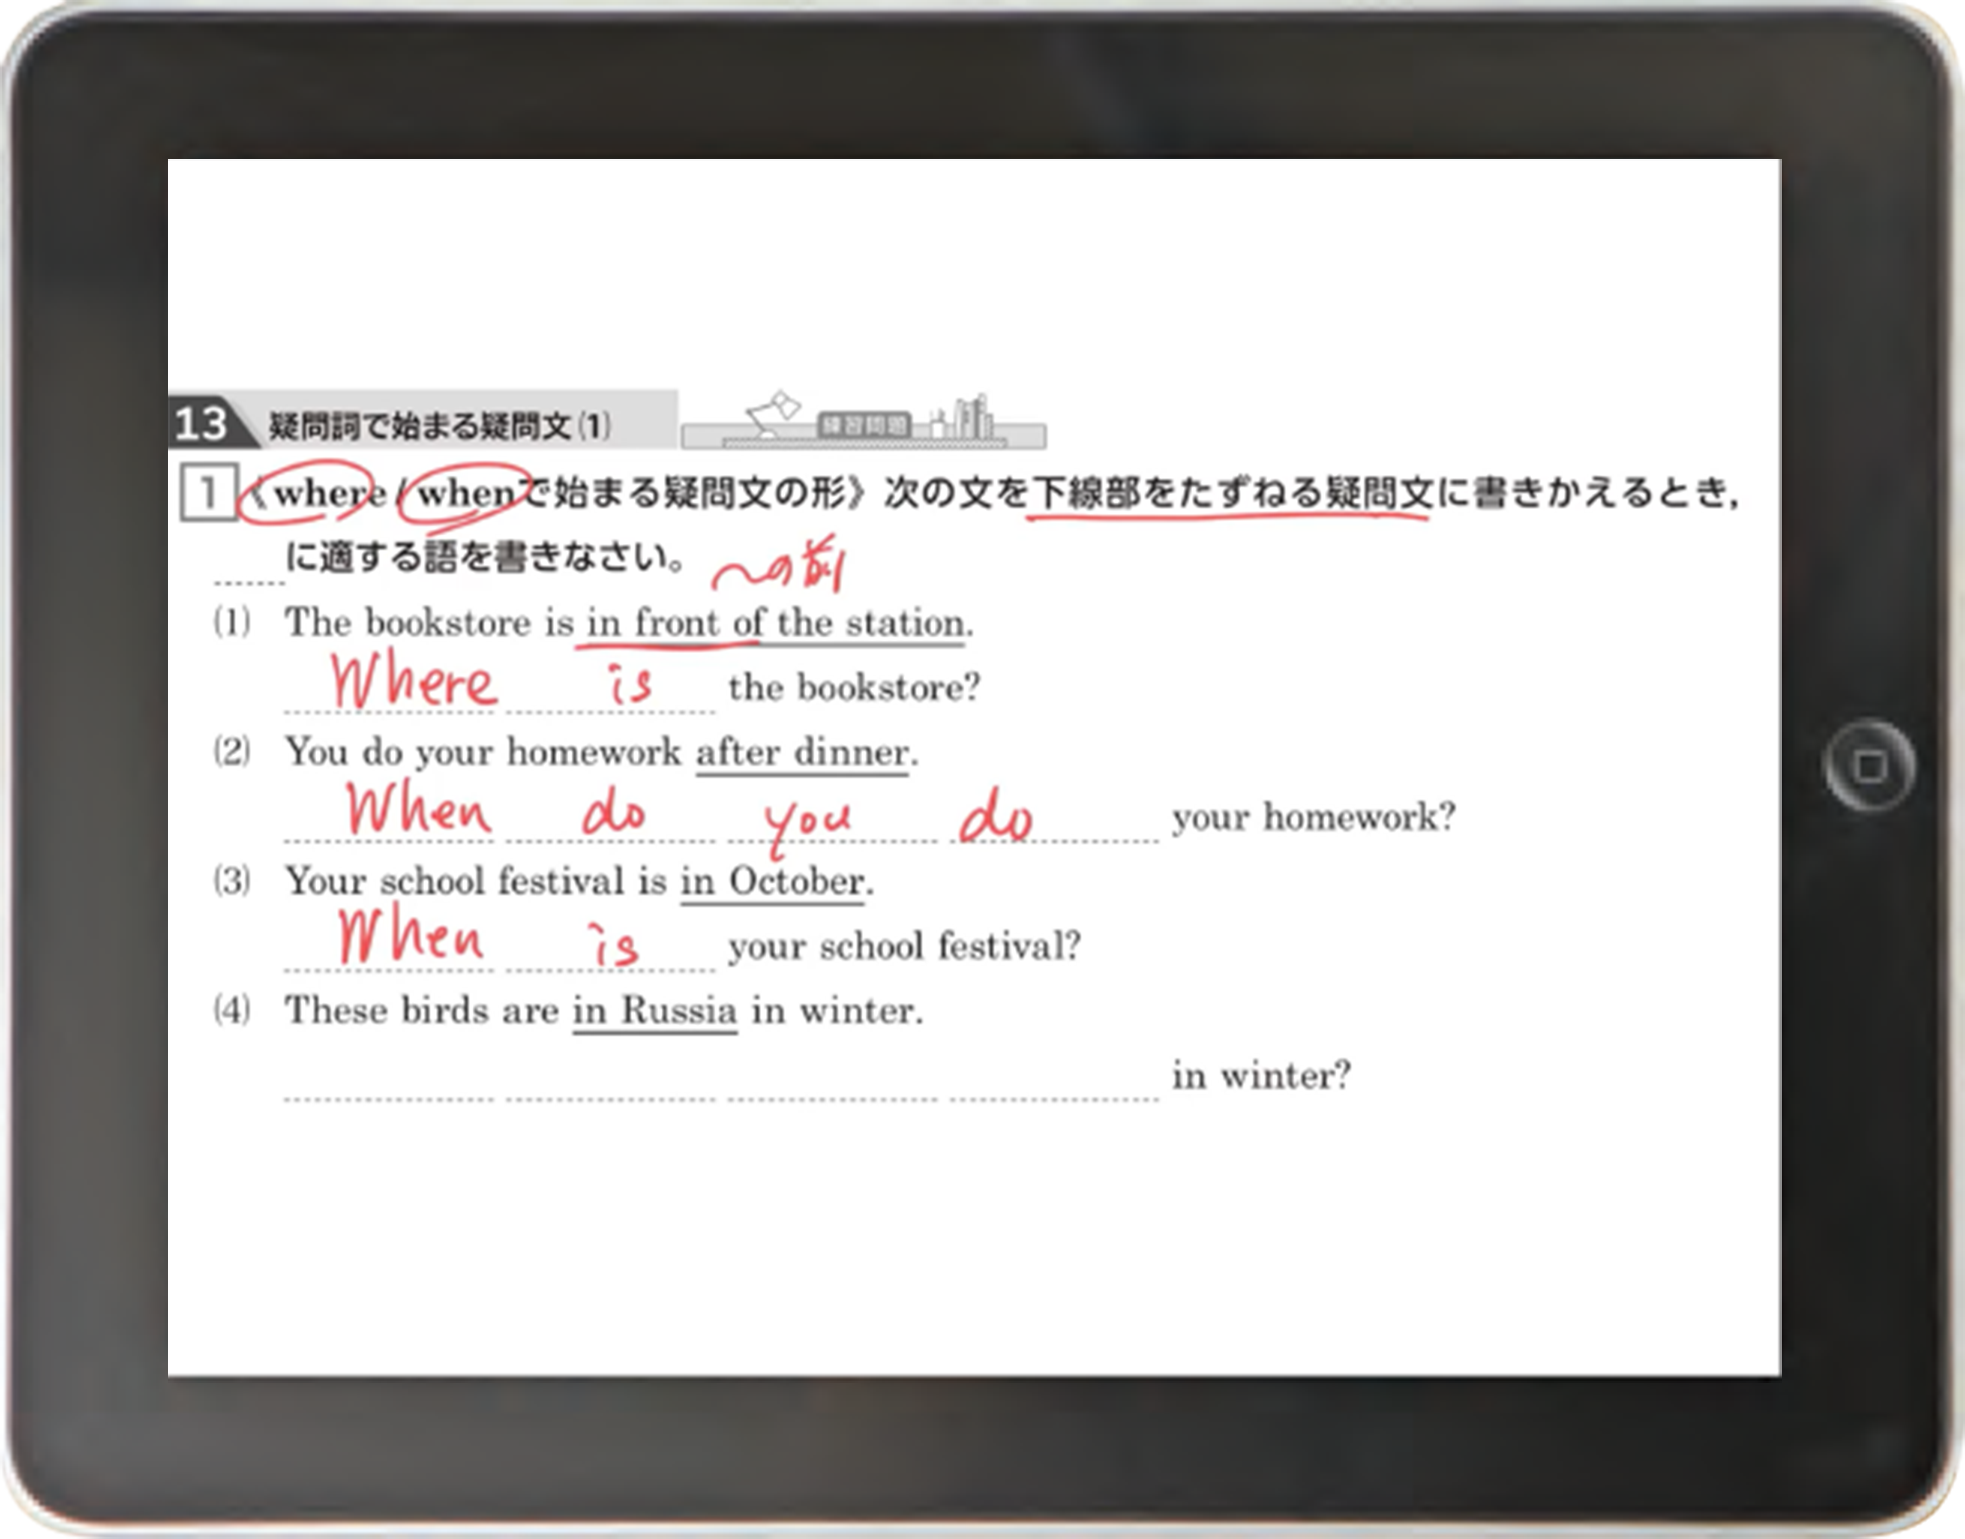 13 疑問詞で始まる疑問文(1) 練習問題
1 《where / whenで始まる疑問文の形》次の文を下線部をたずねる疑問文に書きかえるとき,
に適する語を書きなさい。
〜の前
(1) The bookstore is in front of the station.
Where is the bookstore?
(2) You do your homework after dinner.
When do you do your homework?
(3) Your school festival is in October.
When is your school festival?
(4) These birds are in Russia in winter.
in winter?